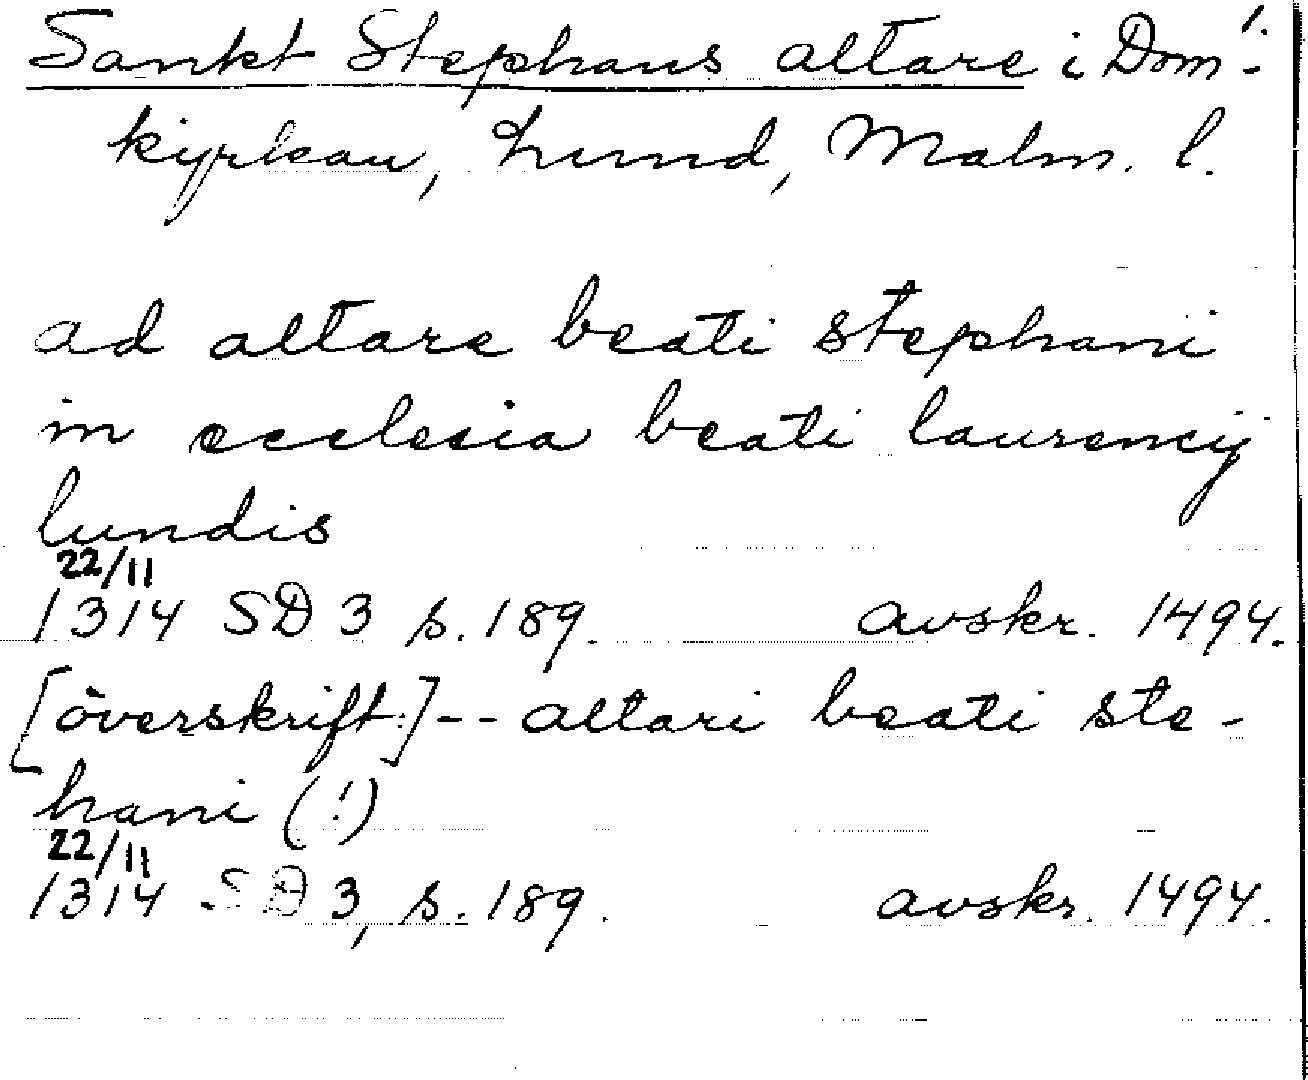 Sankt Stephans altare i Dom-
kyrkan, Lund, Malm. l.
1.
ad altare beati stephani
in ecclesia beati laurencij
lundis
22/11
1314 SD 3 s. 189. avskr. 1494.
[överskift:]-- altari beati ste-
hani (!)
22/11
1314 SD 3, s. 189. avskr. 1494.